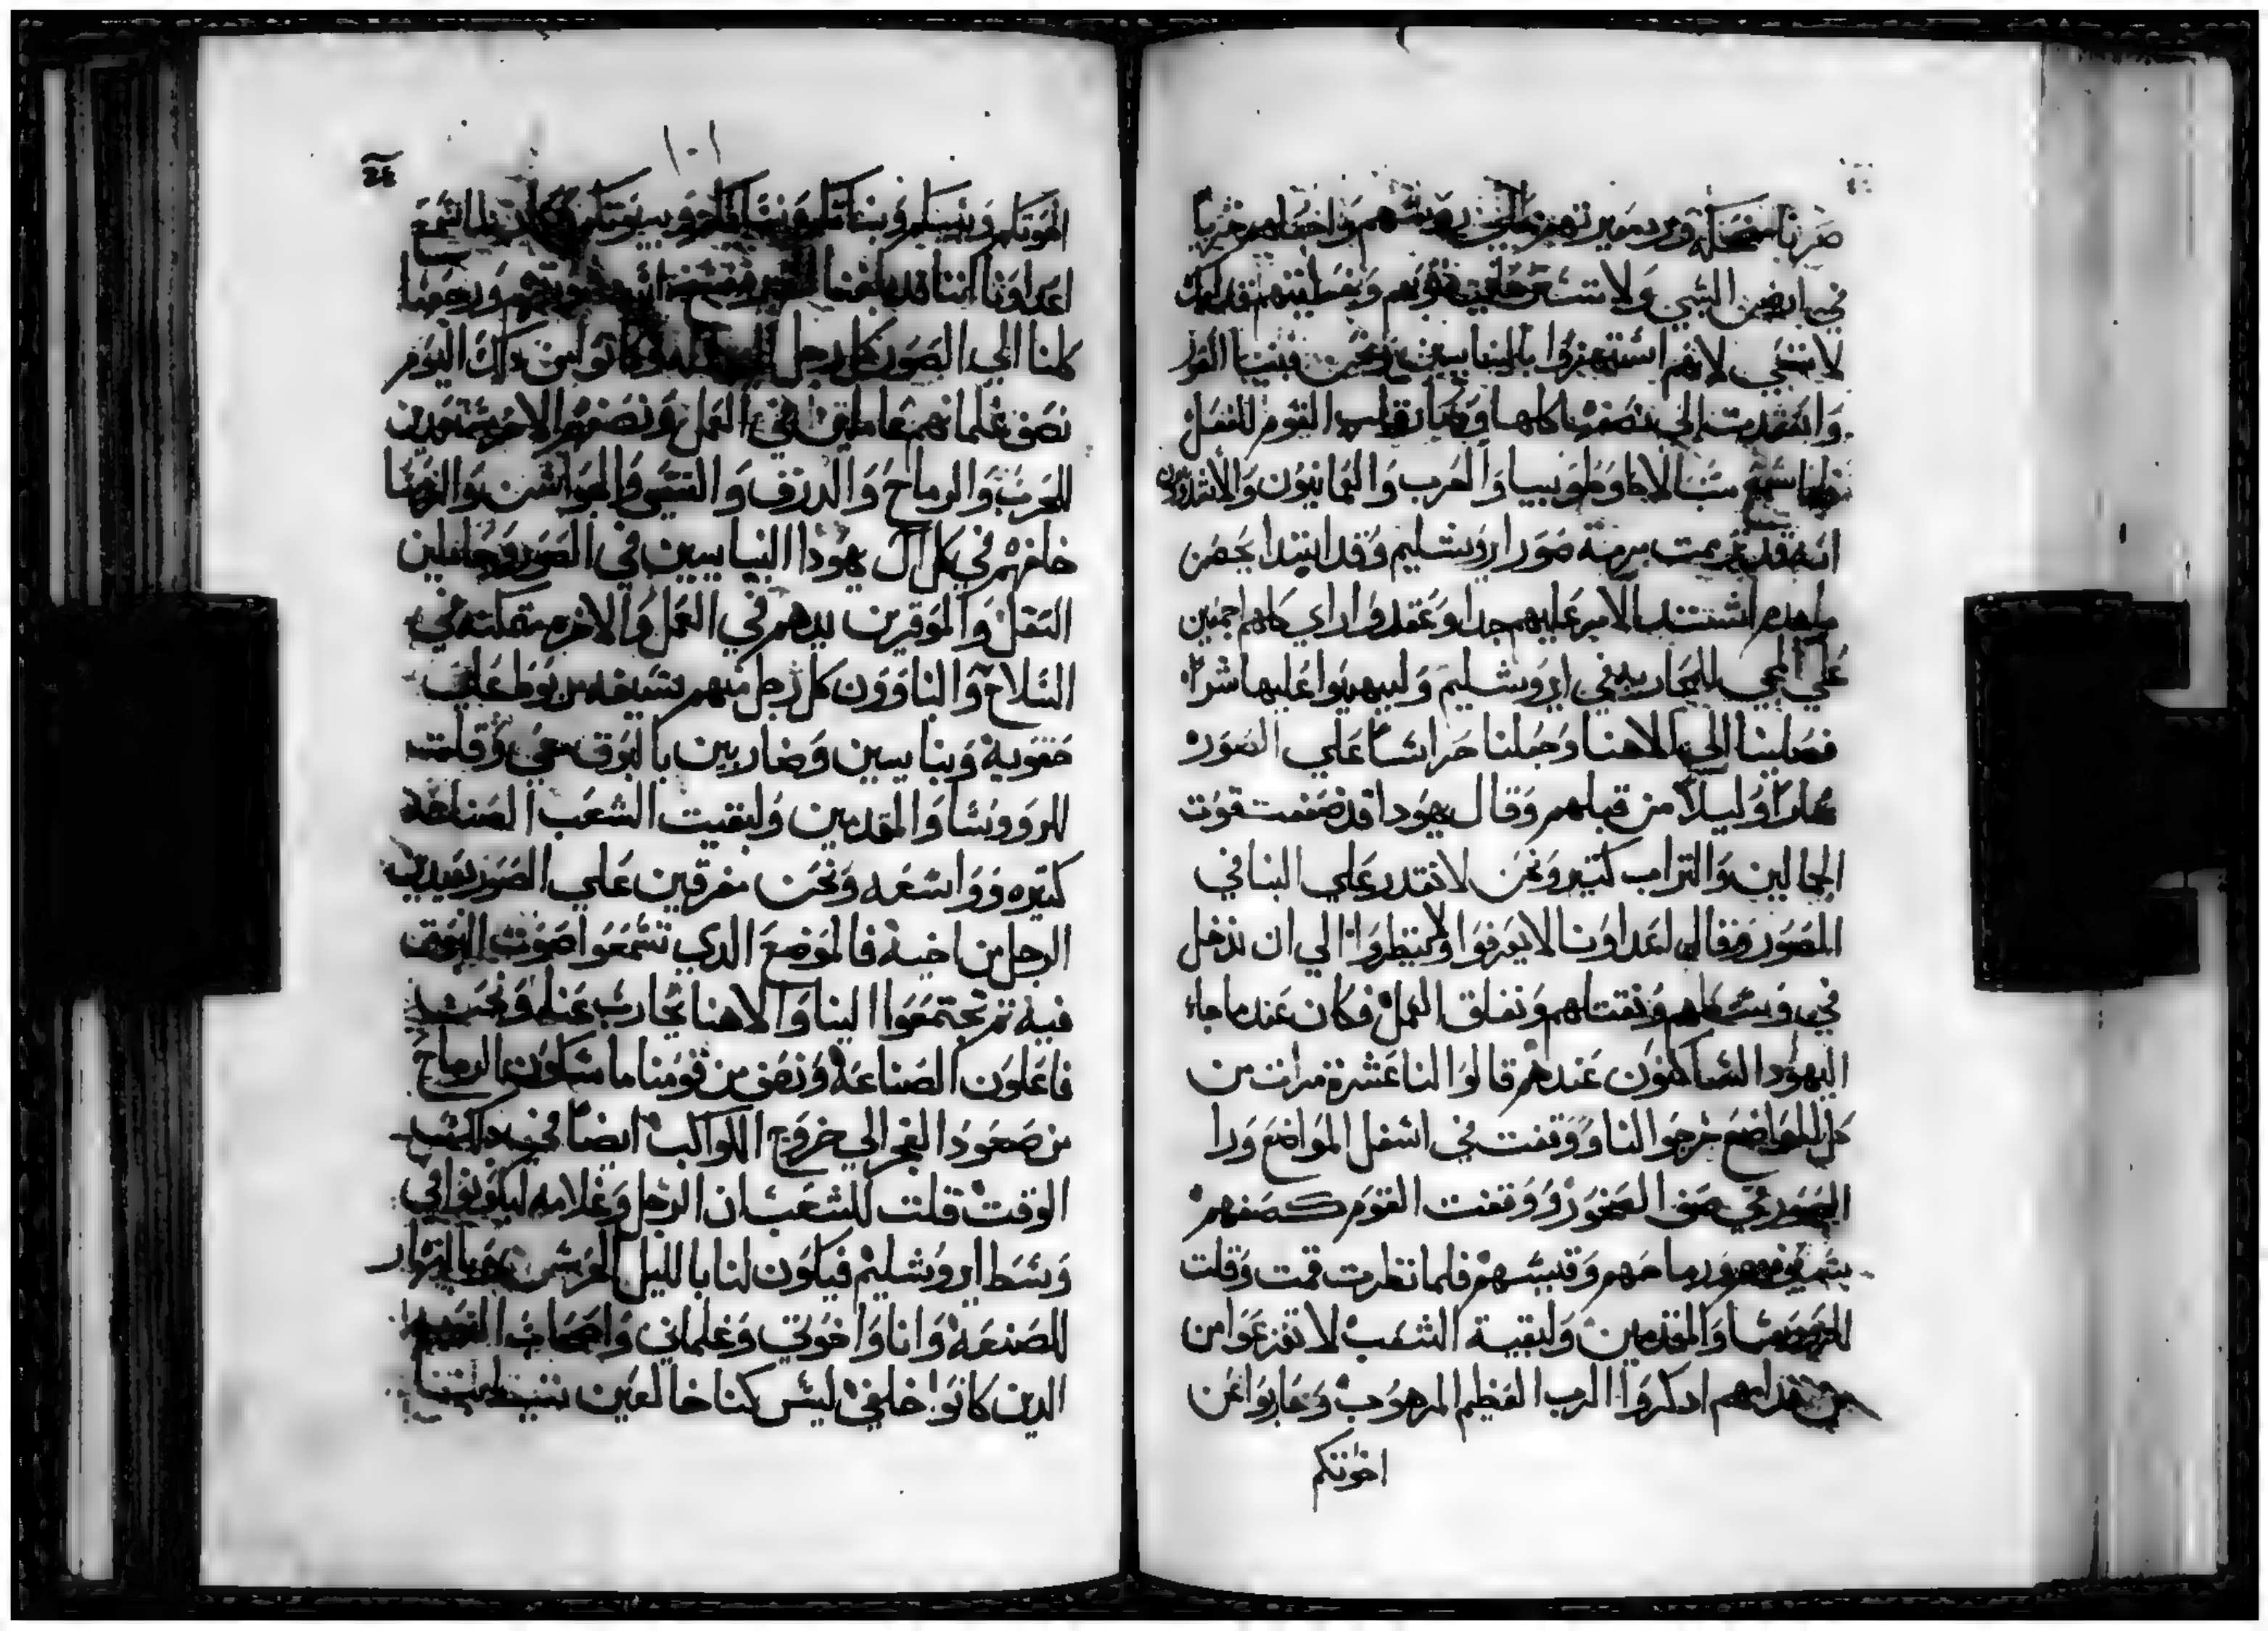 صرنا ورد معيرتهم علي رووسهم واجعلهم خزيا
في ارض السبي ولا تستر علي دنوبهم وخطيتهم قدامك
لا تنمحي لانهم استهزوا بالبنايين ونحن فبنينا السور
واتصلت الي نصفها كلها وكان قلب القوم للعمل
فلما سمع سنبالاط وطوبيا والعرب والعمانيون والاشدوديون
انه قد رممت مرمة صور اروشليم وقد ابتدا بحصن
ما هدم اشتد الامر عليهم جدا وعقدوا راي كلهم اجمعين
علي المجي للمحاربه في اروشليم وليهيوا عليها شرا
فصلينا الي الاهنا وجعلنا حراسا علي الصور
نهارا وليلا من قبلهم وقال يهودا قد ضعفت قوت
الجمالين والتراب كتير ونحن لا نقدر علي البنا في
الصور وقال اعداونا لا يعرفوا ولا ينظروا الي ان ندخل
في وسطهم ونقتلهم ونغلق العمل فكان عند ما جاء
اليهود الساكنون عندهم قالوا لنا عشرة مرات من
كل المواضع خرجوا لنا ووقفت في اسفل المواضع ورا
الصور في صف الصخور ووقفت القوم كصفهم
بسيوفهم ورماحهم وقسيهم فلما نظرت قمت وقلت
للروسا والمقدمين ولبقية الشعب لا تفزعوا من
من قدامهم ادكروا الرب العظيم المرهوب وحاربوا عن
اخوتكم
١٠١
اخوتكم وبنيكم وبناتكم ونساكم وبيوتكم وكان لما سمع
اعداونا اننا قد علمنا ورجعنا
كلنا الي الصور كل رجل الي عمله وكانوا من دلك اليوم
نصف غلمانهم عاملين في العمل ونصفهم الاخر مستعدين
للحرب والرماح والدرق والقسي والجواشن والروسا
خلفهم في كل ال يهودا البنايين في الصور وحاملين
التقل والموقرين يدهم في العمل والاخره متمكنه في
السلاح والبناوون كل رجل منهم بسيفه مربوط علي
حقويه وبنايين وضاربين بالبوق معي وقلت
للرووسا والمقدمين ولبقيت الشعب الصناعه
كتيره وواسعه ونحن مفرقين علي الصور بعيدين
الرجل من اخيه فالموضع الدي تسمعوا صوت البوق
فيه تم تجتمعوا الينا والاهنا يحارب عنا ونحن
فاعلون الصناعة ونصف من قومنا ماسكون الرماح
من صعود الفجر الي خروج الكواكب ايضا في دلك
الوقت قلت للشعب ان الرجل وغلامه ليكونوا في
وسط اروشليم فيكون لنا بالليل الحرس وبالنهار
للصنعة وانا واخوتي وغلماني واصحاب الحرس
الدين كانوا خلفي ليس كنا خالعين